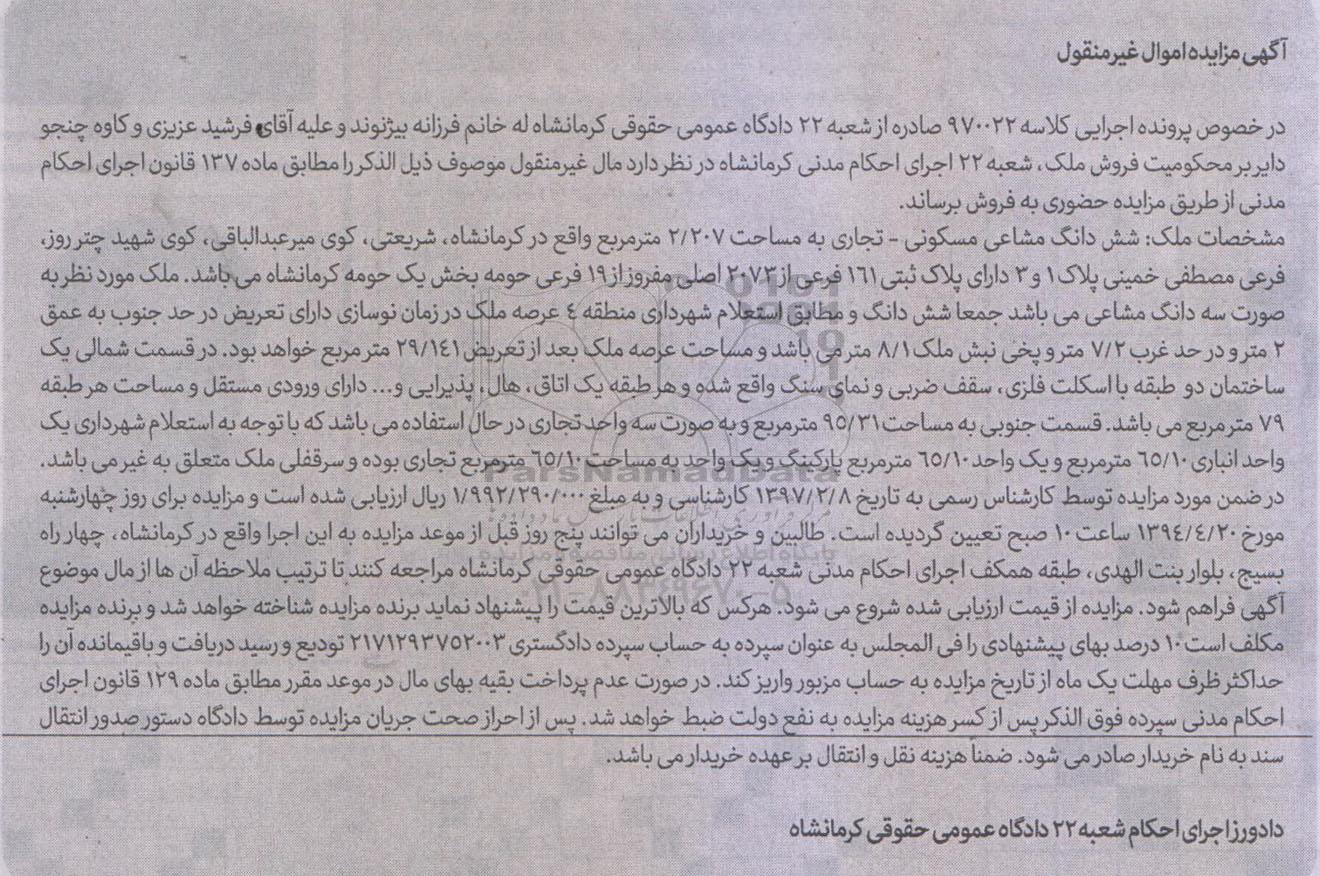 آگهی مزایده اموال غیرمنقول
در خصوص پرونده اجرایی کلاسه ۹۷۰۰۲۲ صادره از شعبه ۲۲ دادگاه عمومی حقوقی کرمانشاه له خانم فرزانه بیژنوند و علیه آقای فرشید عزیزی و کاوه چنجو
دایر بر محکومیت فروش ملک، شعبه ۲۲ اجرای احکام مدنی کرمانشاه در نظر دارد مال غیرمنقول موصوف ذیل الذکر را مطابق ماده ۱۳۷ قانون اجرای احکام
مدنی از طریق مزایده حضوری به فروش برساند.
مشخصات ملک: شش دانگ مشاعی مسکونی - تجاری به مساحت ۲/۲۰۷ مترمربع واقع در کرمانشاه، شریعتی، کوی میرعبدالباقی، کوی شهید چتر روز،
فرعی مصطفی خمینی پلاک ۱ و ۳ دارای پلاک ثبتی ۱۶۱ فرعی از ۲۰۷۳ اصلی مفروز از ۱۹ فرعی حومه بخش یک حومه کرمانشاه می باشد. ملک مورد نظر به
صورت سه دانگ مشاعی می باشد جمعا شش دانگ و مطابق استعلام شهرداری منطقه ٤ عرصه ملک در زمان نوسازی دارای تعریض در حد جنوب به عمق
۲ متر و در حد غرب ۷/۲ متر و پخی نبش ملک ۸/۱ متر می باشد و مساحت عرصه ملک بعد از تعریض ۲۹/۱٤۱ متر مربع خواهد بود. در قسمت شمالی یک
ساختمان دو طبقه با اسکلت فلزی، سقف ضربی و نمای سنگ واقع شده و هر طبقه یک اتاق، هال، پذیرایی و... دارای ورودی مستقل و مساحت هر طبقه
۷۹ متر مربع می باشد. قسمت جنوبی به مساحت ۹۵/۳۱ مترمربع و به صورت سه واحد تجاری در حال استفاده می باشد که با توجه به استعلام شهرداری یک
واحد انباری ٦۵/۱۰ مترمربع و یک واحد ٦۵/۱۰ مترمربع پارکینگ و یک واحد به مساحت ٦۵/۱۰ مترمربع تجاری بوده و سرقفلی ملک متعلق به غیر می باشد.
در ضمن مورد مزایده توسط کارشناس رسمی به تاریخ ۱۳۹۷/۲/۸ کارشناسی و به مبلغ ۱/۹۹۲/۲۹۰/۰۰۰ ریال ارزیابی شده است و مزایده برای روز چهارشنبه
مورخ ۱۳۹٤/٤/۲۰ ساعت ۱۰ صبح تعیین گردیده است. طالبین و خریداران می توانند پنج روز قبل از موعد مزایده به این اجرا واقع در کرمانشاه، چهار راه
بسیج، بلوار بنت الهدی، طبقه همکف اجرای احکام مدنی شعبه ۲۲ دادگاه عمومی حقوقی کرمانشاه مراجعه کنند تا ترتیب ملاحظه آن ها از مال موضوع
آگهی فراهم شود. مزایده از قیمت ارزیابی شده شروع می شود. هرکس که بالاترین قیمت را پیشنهاد نماید برنده مزایده شناخته خواهد شد و برنده مزایده
مکلف است ۱۰ درصد بهای پیشنهادی را فی المجلس به عنوان سپرده به حساب سپرده دادگستری ۲۱۷۱۲۹۳۷۵۲۰۰۳ تودیع و رسید دریافت و باقیمانده آن را
حداکثر ظرف مهلت یک ماه از تاریخ مزایده به حساب مزبور واریز کند. در صورت عدم پرداخت بقیه بهای مال در موعد مقرر مطابق ماده ۱۲۹ قانون اجرای
احکام مدنی سپرده فوق الذکر پس از کسر هزینه مزایده به نفع دولت ضبط خواهد شد. پس از احراز صحت جریان مزایده توسط دادگاه دستور صدور انتقال
سند به نام خریدار صادر می شود. ضمناً هزینه نقل و انتقال بر عهده خریدار می باشد.
دادورز اجرای احکام شعبه ۲۲ دادگاه عمومی حقوقی کرمانشاه
ParsNamadData
پایگاه اطلاع رسانی مناقصه و مزایده
۰۲۱-۸۸۳٤۹٦۷۰-۵